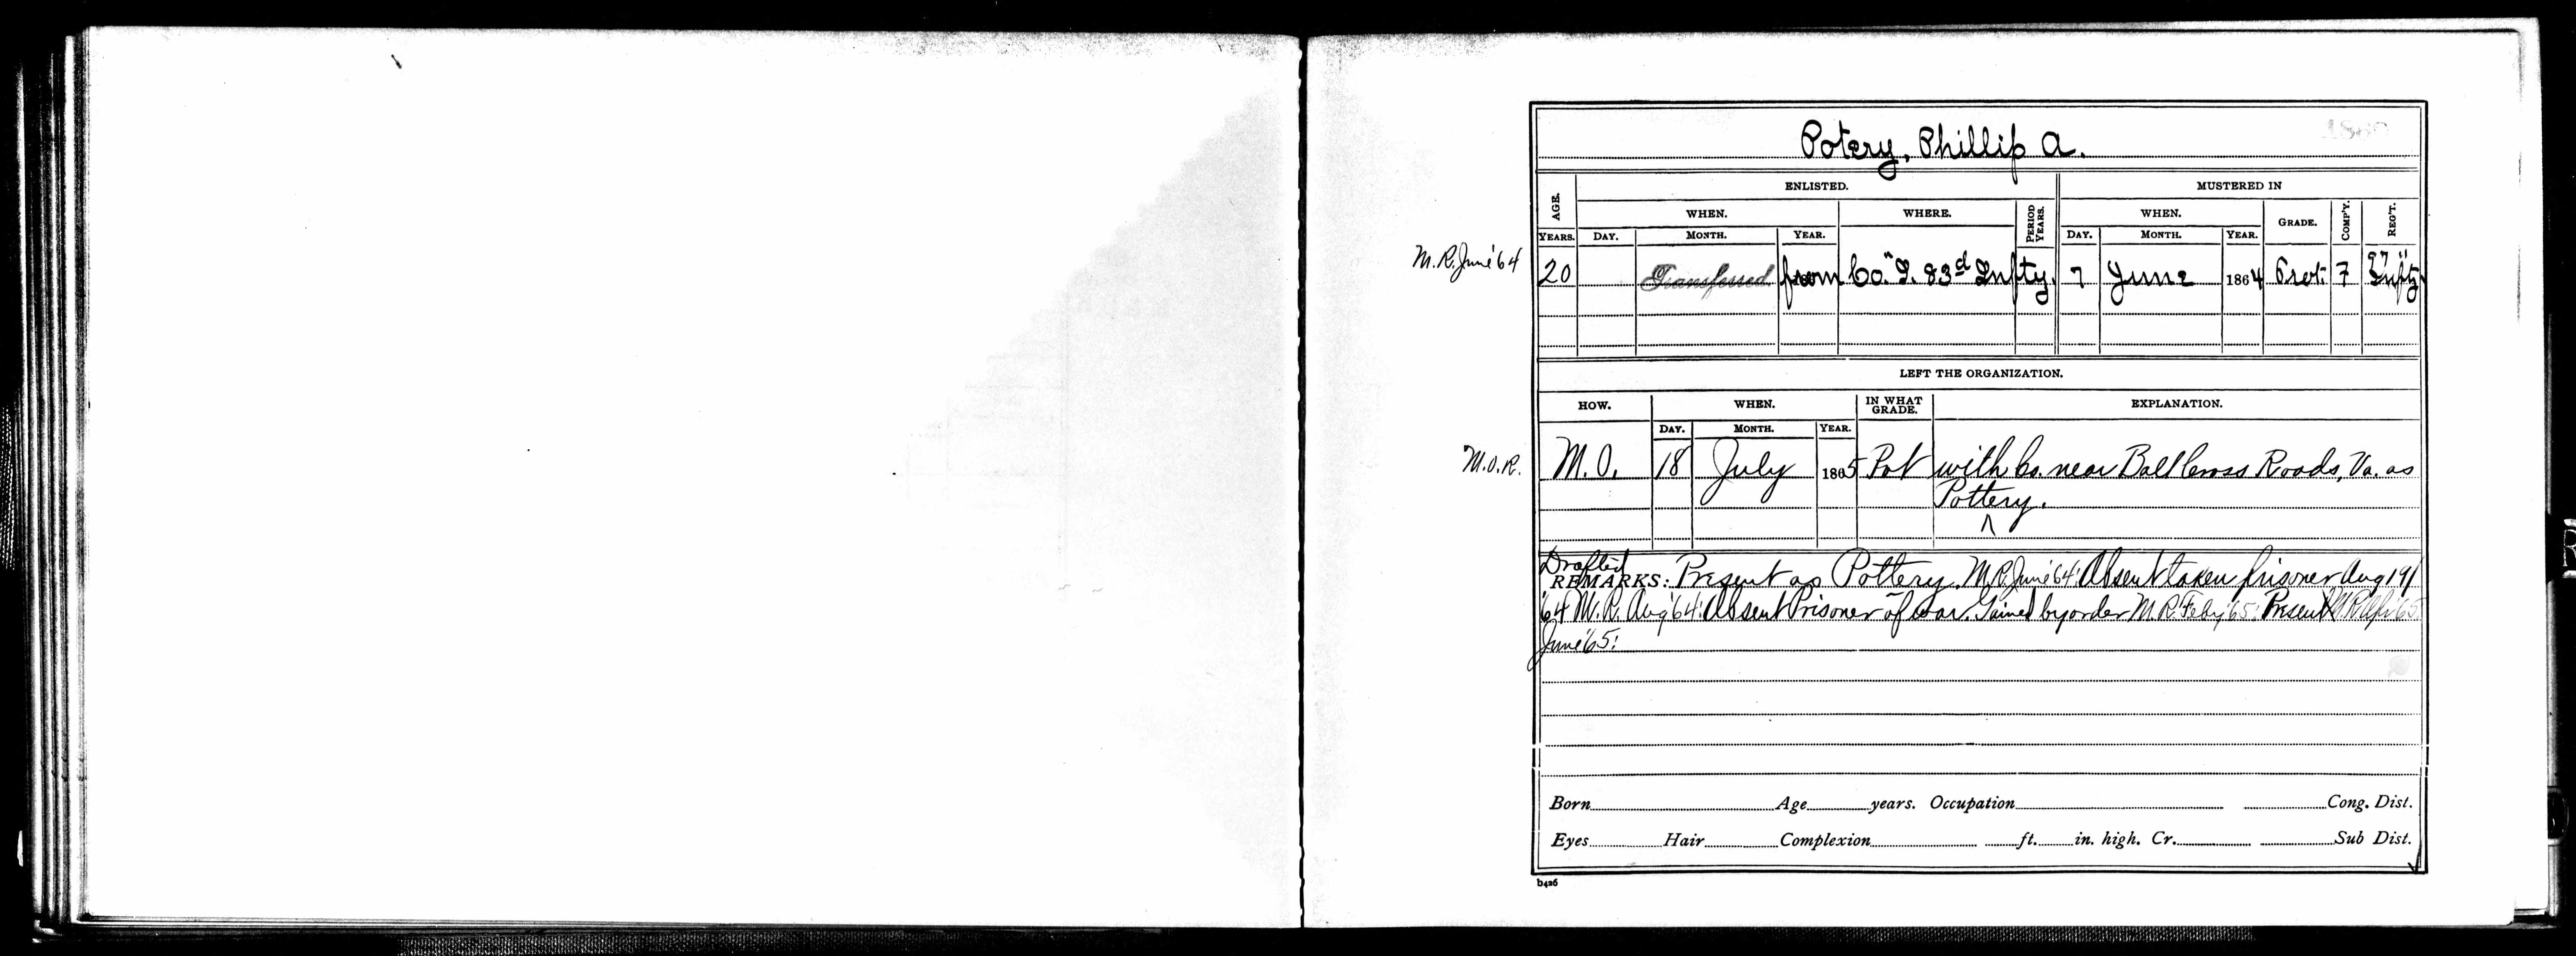 Potery, Phillip A.
ENLISTED. MUSTERED IN
AGE. WHEN. WHERE. PERIOD YEARS. WHEN. GRADE. COMP'Y. REG'T.
YEARS. DAY. MONTH. YEAR. DAY. MONTH. YEAR.
M.R. June '64 20 Transferred from Co. "I. 83d Infty. 7 June 1864 7 97" Infty
LEFT THE ORGANIZATION.
HOW. WHEN. IN WHAT GRADE. EXPLANATION.
DAY. MONTH. YEAR.
M.O.R. M.O. 18 July 1865 Pvt with Co. near Ball Cross Roads, Va. as
Pottery.
Drafted
REMARKS: Present as Pottery. M.R. June '64: Absent taken prisoner Aug 19/
'64 M.R. Aug '64: Absent Prisoner of war. Gained by order M.R. Feby '65: Present M.R. Apr '65
June '65:
Born Age years. Occupation Cong. Dist.
Eyes Hair Complexion ft. in. high. Cr. Sub Dist.
b426